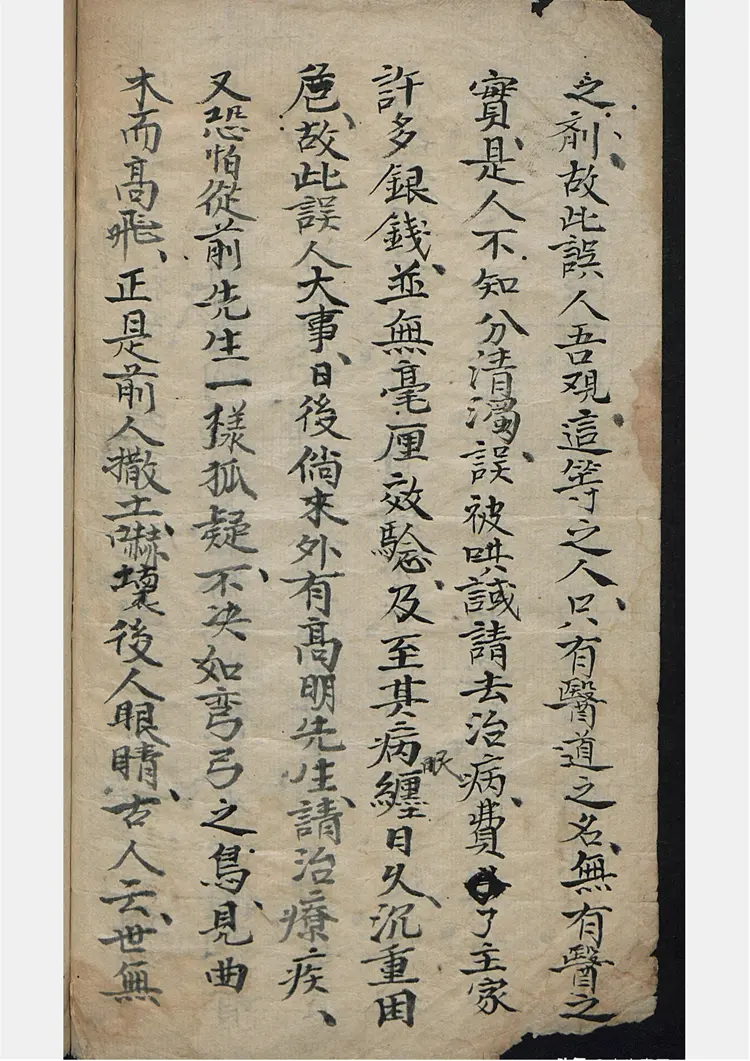 之剤故此誤人吾观這等之人、只有醫道之名、無有醫之
實、是人不知分清濁、誤被哄誠請去治病、費了主家
許多銀錢、並無毫厘效驗、及至其病纏眠日久、沉重困
危、故此誤人大事、日後倘來外有高明先生、請治療疾、
又恐怕從前先生一樣狐疑、不决如弯弓之鳥、見曲
木而高飛、正是前人撒土、嚇壞後人眼睛、古人云、世無